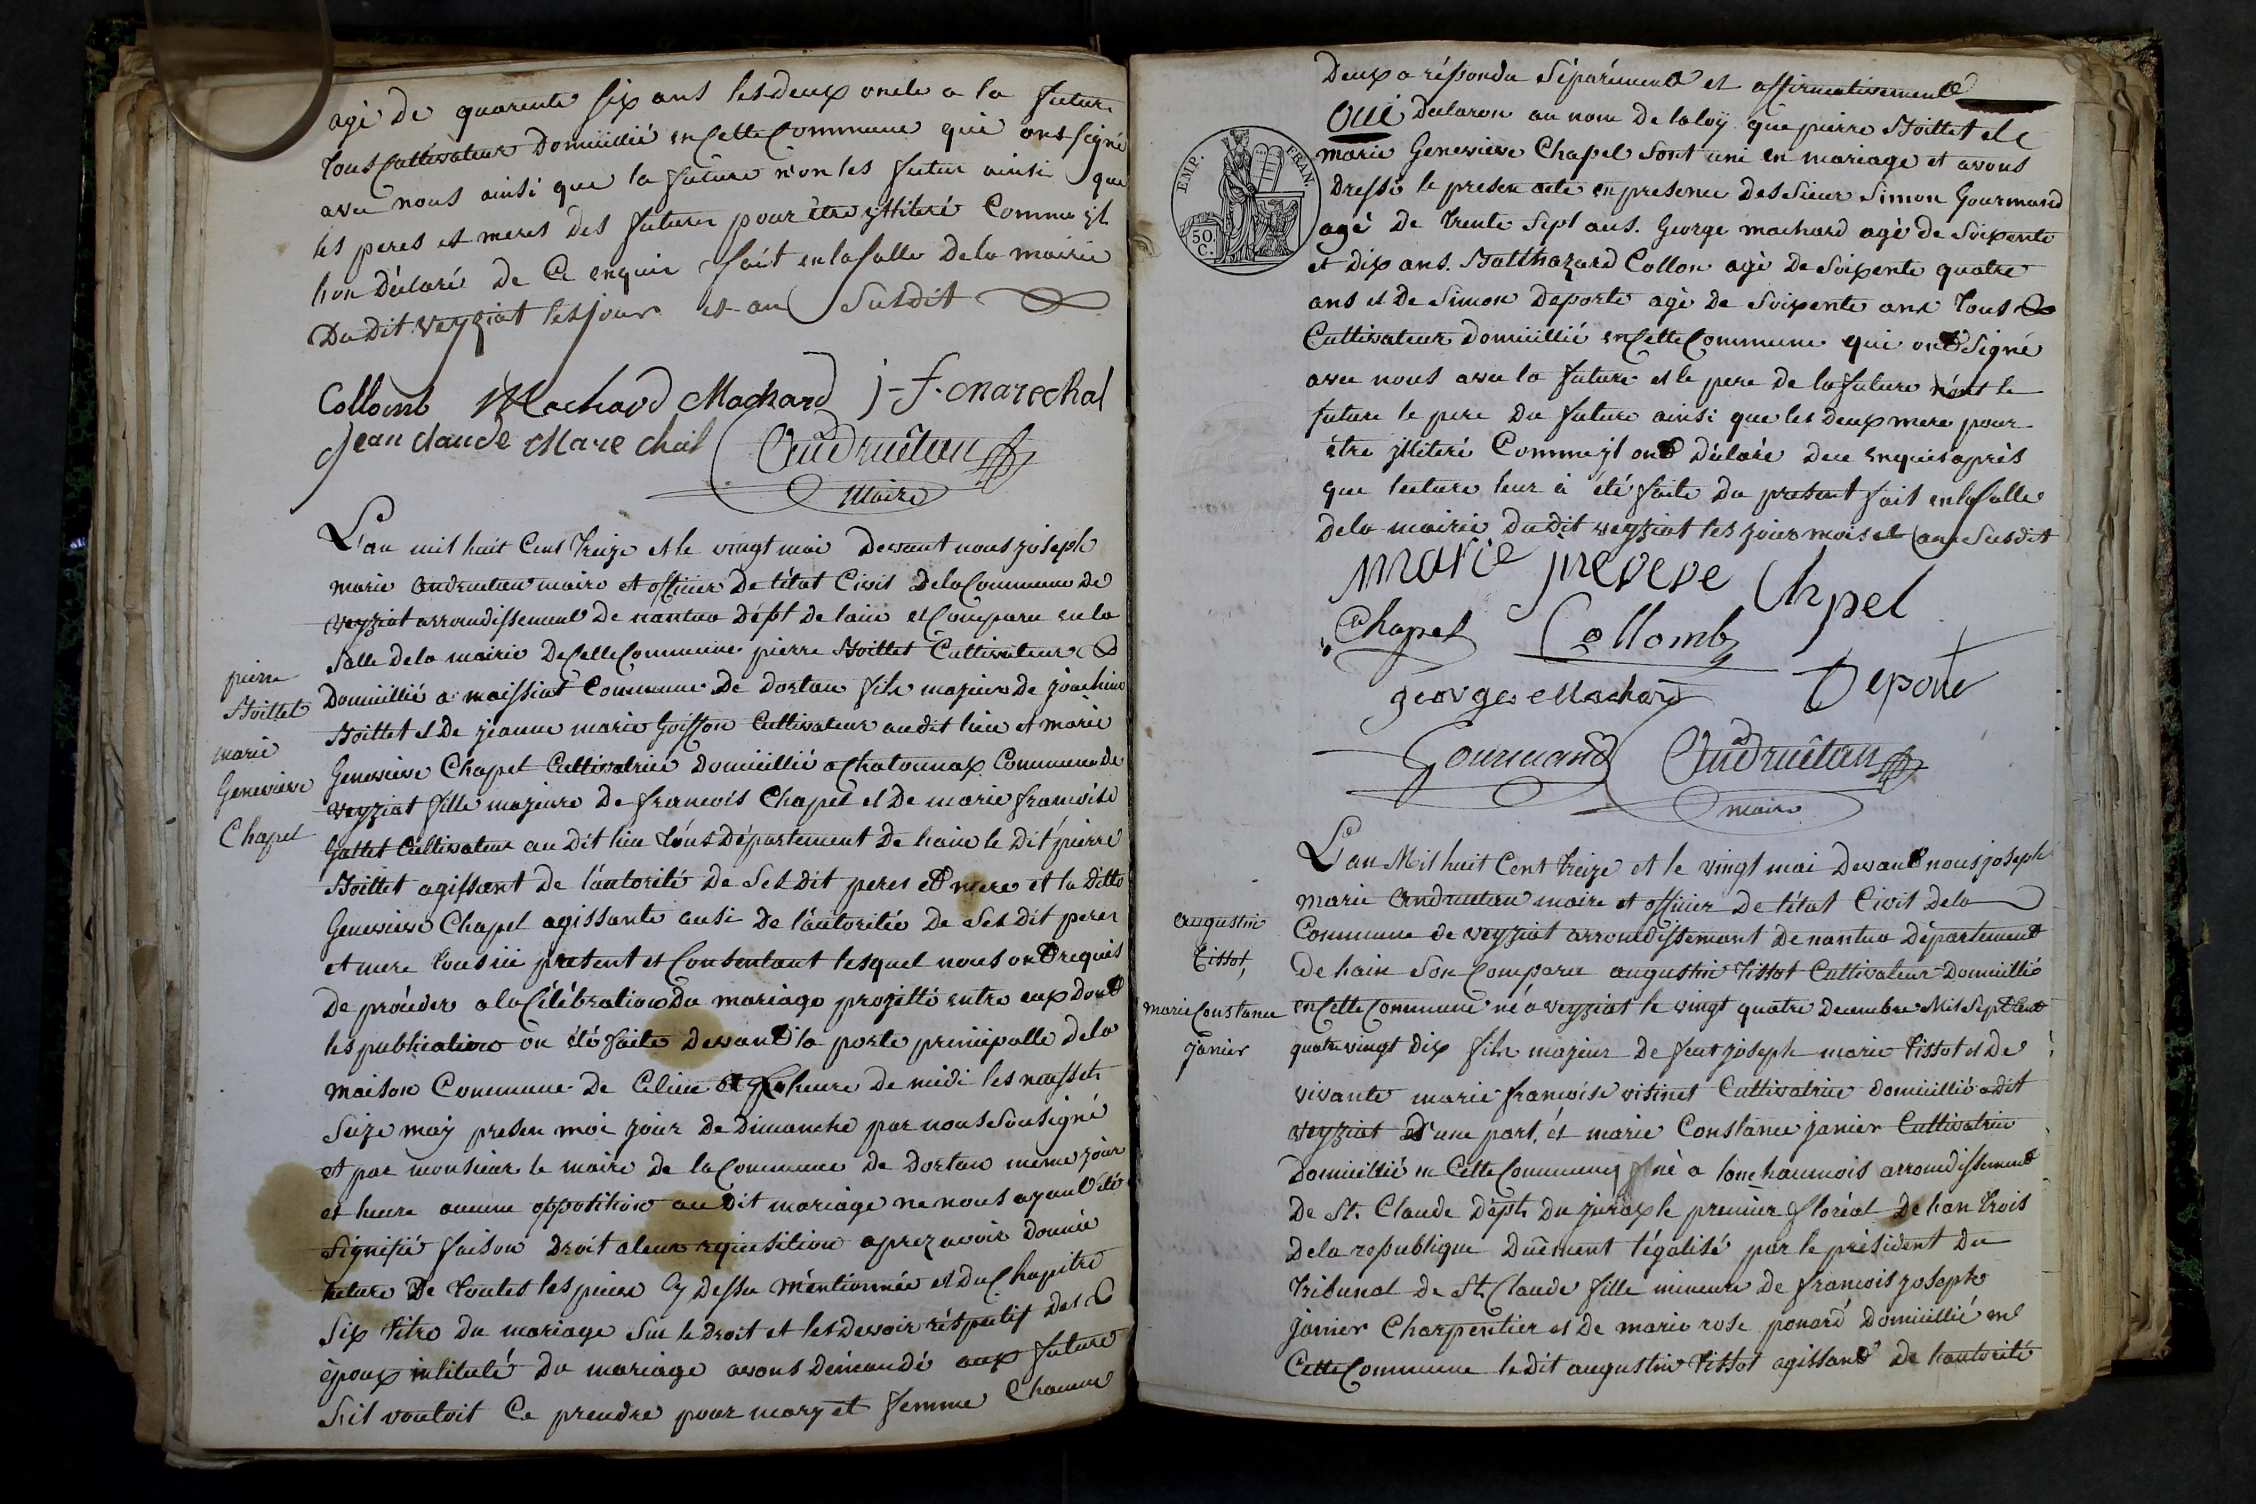 agé de quarente six ans les deux oncle a la future
tous Cultivateur Domicillié en Cette Commune qui ons signé
avec nous ainsi que la future n'on les futur ainsi que
les peres et meres des futures pour être illiteré Comme yl
l'on Déclaré de Ce enquis fait en la salle de la mairie
Du dit veyziat les jour et an Susdit
Collomb Machard Machard j-f. marechal
jean claude Marechal Andruétan
Maire
L'an mil huit Cent treize et le vingt mai Devant nous joseph
marie andruetan maire et officier De l'état Civil De la Commune De
veyziat arrondissement de nantua dépt de lain et Comparu en la
salle de la mairie De Cette Commune pierre Boillet Cultivateur
pierre
Boillet
marie
Genevieve
Chapel
Domicillié a maissiat Commune De dortan fils majeur de joachim
Boillet et De jeanne marie Goisson Cultivateur au dit lieu et marie
Genevieve Chapel Cultivatrice domicillié a Chatonnax Commune de
veyziat fille majeure De francois Chapel et De marie francoise
Gattet Cultivateur au dit lieu tous Département De lain le dit pierre
Boillet agissant de l'autorité de Ses dit peres et mere et la ditte
Genevieve Chapel agissante ausi De l'autoritée De Ses dit peres
et mere tous ici present et Consentant lesquel nous ont requis
De procéder a la Célébration Du mariage projetté entre eux dont
les publication on été faite devant la porte principalle de la
maison Commune De Celieu et heure de midi les
Seize may presen moi jour de Dimanche par nous Sousigné
et par monsieur le maire de la Commune de Dortan même jour
et heure aucune opposition au dit mariage ne nous ayant été
Signifié faison Droit a leur requisition aprez avoir donnée
lecture De toutes les pieces Cy dessu méntionnée et du Chapitre
Six titre Du mariage Sur le Droit et les devoir réspectif des
époux intitulé Du mariage avons demandé aux future
S'il vouloit Ce prendre pour mary et femme Chacun
Deux a répondu Séparément et affirmativement
Oui declaron au nom De la loÿ que pierre Boillet et
marie Genevieve Chapel Sont uni en mariage et avons
EMP. FRAN.
50.
C.
Dressé le presen acte en presence des Sieur Simon Gourmand
agé De trente Sept ans. George machard agé de Soixente
et dix ans. Balthazard Collon agé De Soixente quatre
ans et de Simon Deporte agé de Soixente ans tous
Cultivateur domicillié en Cette Commune qui ont Signé
avec nous avec la future et le pere de la future n'ont le
future le pere Du future ainsi que les deux mere pour
être jlliteré Comme jl ont déclaré dece enquis après
que lecture leur à été faite du present fait en la salle
dela mairie du dit veyziat les jour mois et an Susdit
marie jnevieve Chpel
Chapel Collomb
georges Machard Deporte
Gourmand Andruétan
maire
L'an Mil huit Cent treize et le vingt mai devant nous joseph
marie Andruetan maire et officier De l'état Civil dela
Augustin
Tissot,
marie Constance
janier
Commune de veyziat arrondissement De nantua département
De lain Son Comparu augustin tissot Cultivateur domicillié
en Cette Commune né a veyziat le vingt quatre decembre Mil Sept Cent
quatre vingt dix fils majeur de feut joseph marie tissot et De
vivante marie francoise visinet Cultivatrice domicillié audit
veyziat d'une part, et marie Constance janier Cultivatrice
Domicillié en Cette Commune né a lonchaumois arrondissement
De St. Claude dépt. Du jura le premier floréal De l'an trois
De la republique Duêment légalisé par le président Du
tribunal de St. Claude fille mineure de francois joseph
janier Charpentier et De marie rose ponard domicillié en
Cette Commune le dit augustin tissot agissant de l'autorité